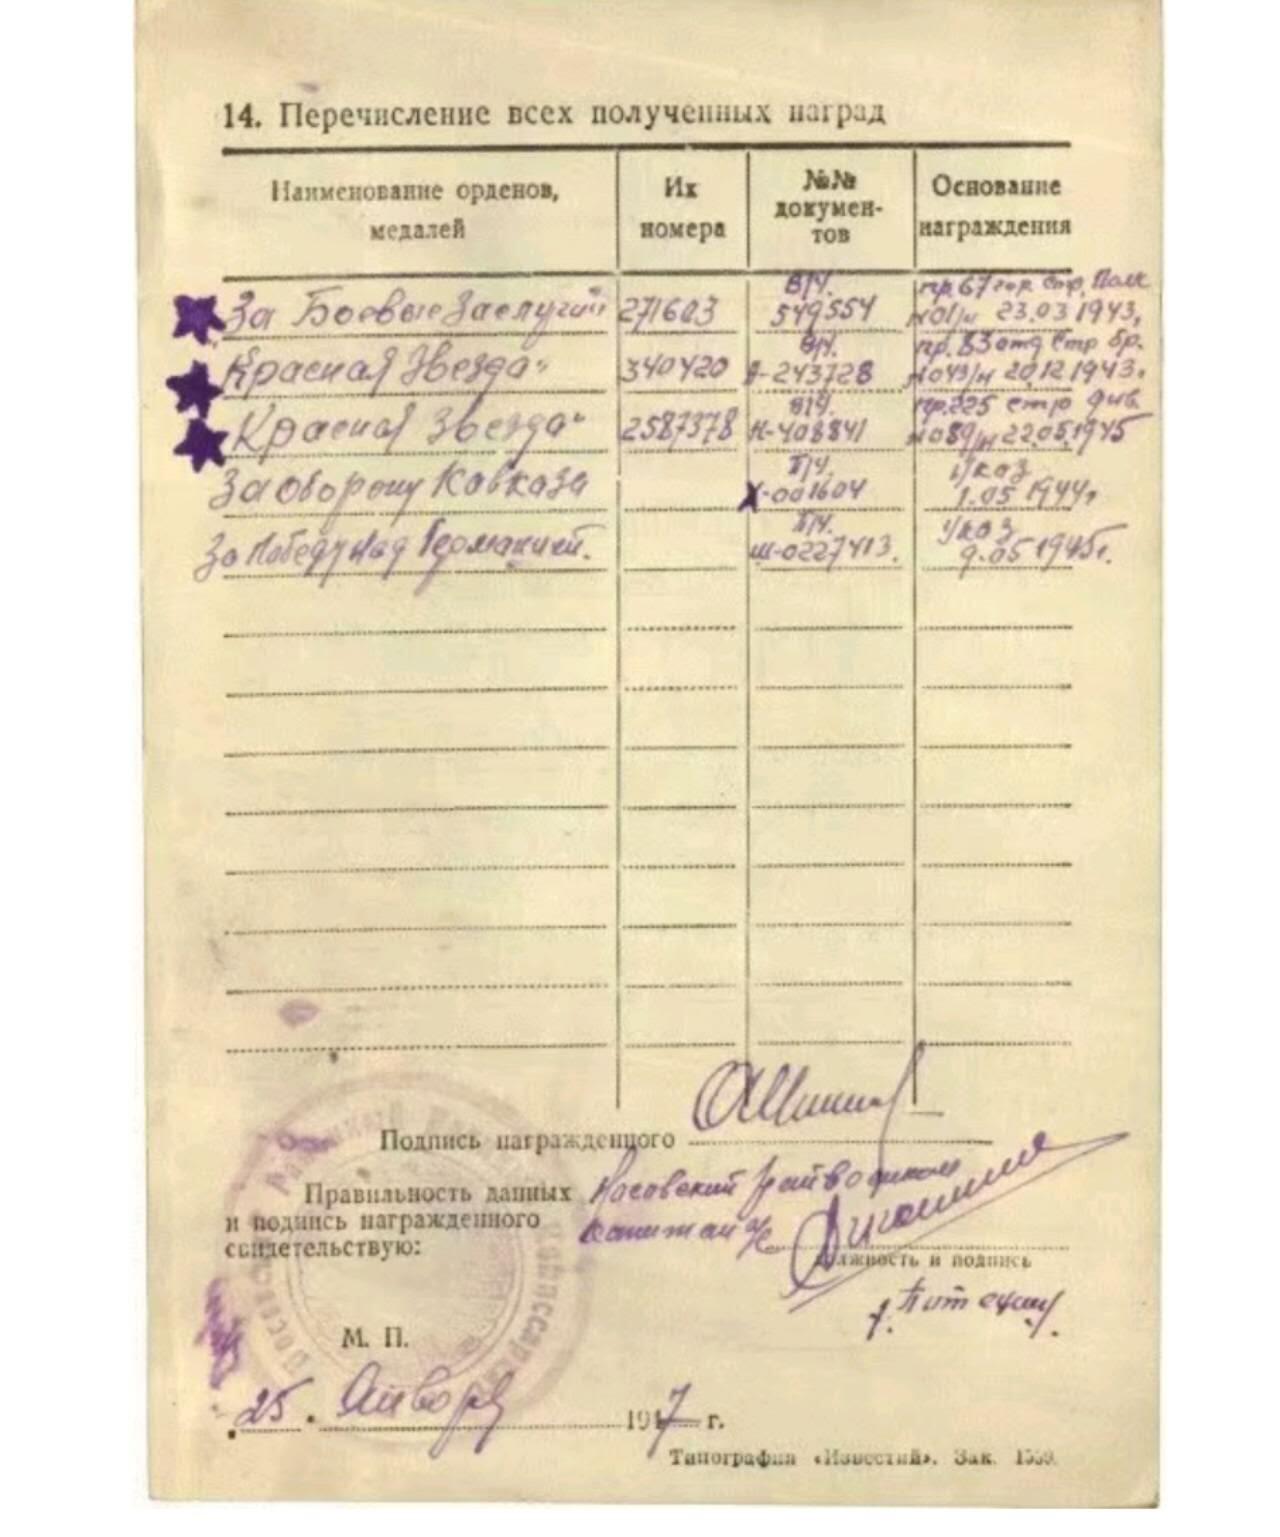 14. Перечисление всех полученных наград
Наименование орденов, медалей
Их номера
№№ документов
Основание награждения
В/Ч. пр. 67 гор. стр. Полк
За Боевые Заслуги" 271603 549554 №01/н 23.03 1943г
В/Ч. пр. 83 отд Стр бр.
Красная Звезда" 340420 243728 №043/н 20.12.1943г
В/Ч. пр. 225 стр див
Красная Звезда" 2587378 К-408841 №089/н 22.05.1945
П/Ч. Указ
За оборону Кавказа Х-001604 1.05 1944г
П/Ч. Указ
За Победу Над Германией. Ш-0227413. 9.05 1945г.
Подпись награжденного
Правильность данных
и подпись награжденного
свидетельствую:
Носовский райвоенком
капитан
должность и подпись
М. П.
25 Января 1947 г.
Типография «Известий». Зак.